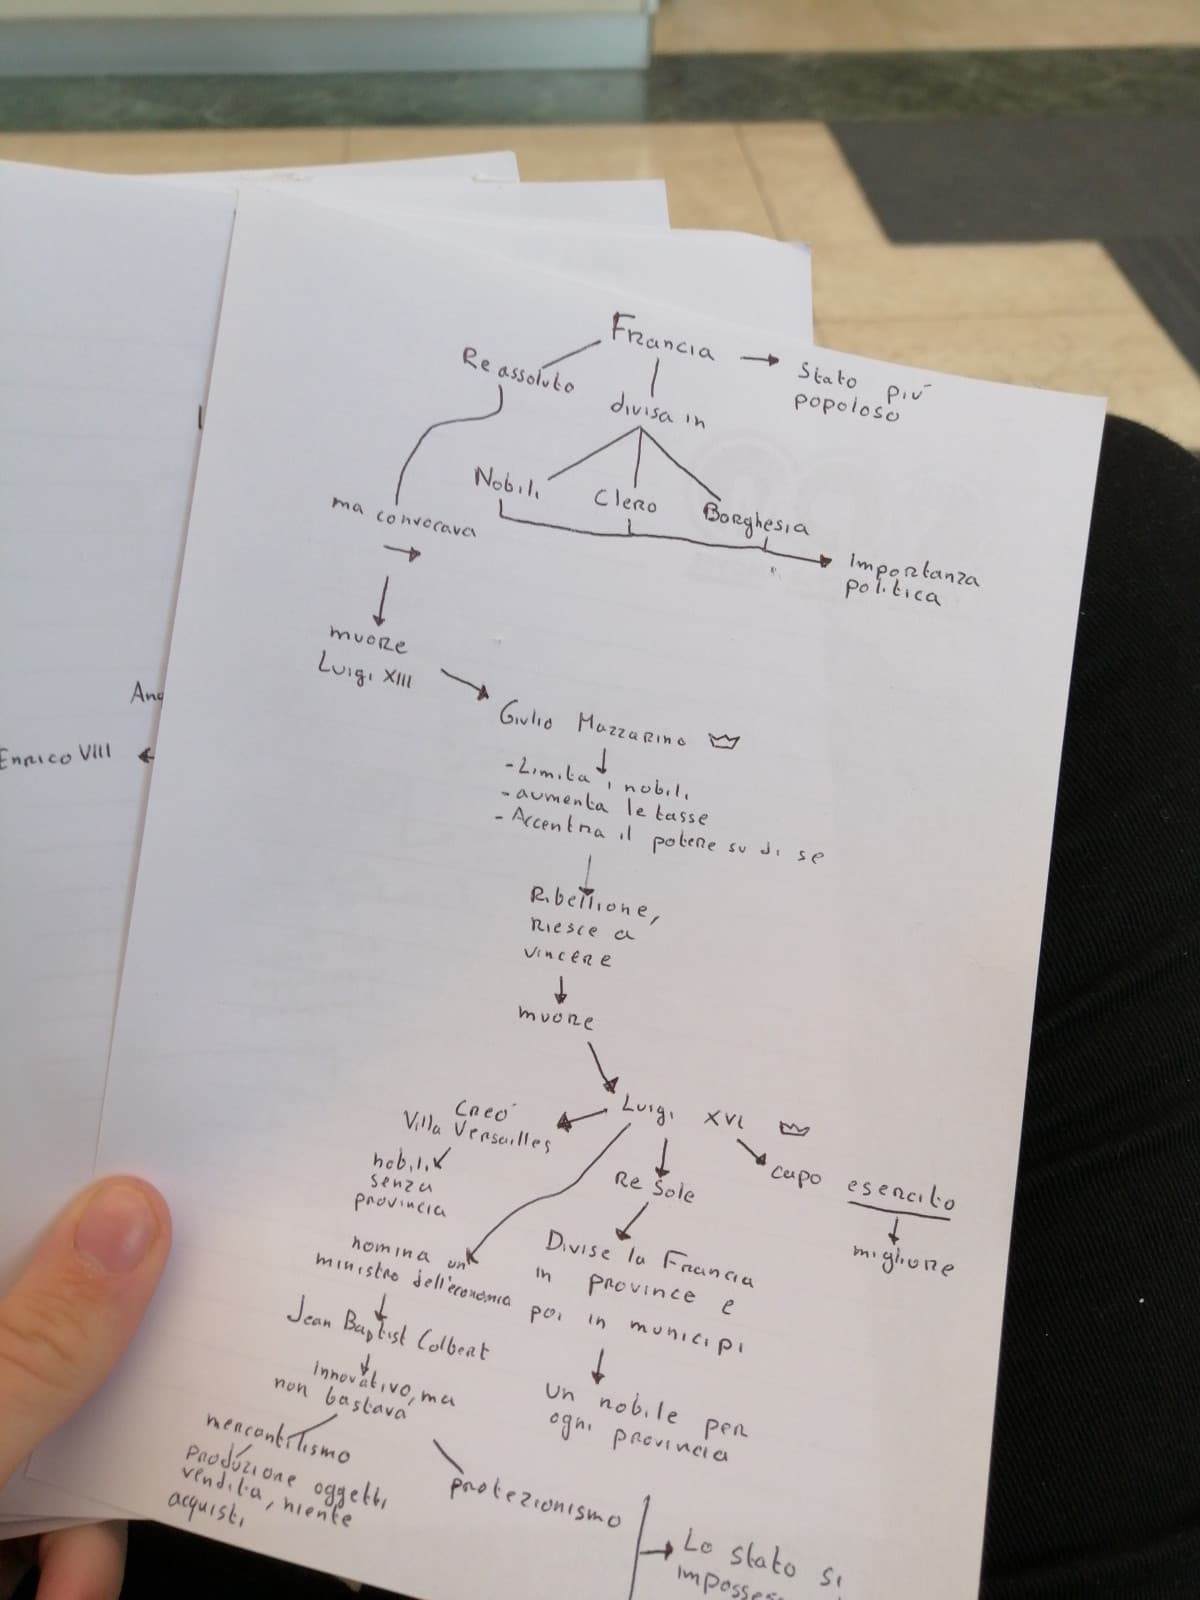 Francia
Re assoluto
Stato più
popoloso
divisa in
Nobili
Clero
Borghesia
ma convocava
Importanza
politica
muore
Luigi XIII
Giulio Mazzarino
-Limita i nobili
-aumenta le tasse
-Accentra il potere su di se
Ribellione,
riesce a
vincere
muore
Luigi XVI
Creò
Villa Versailles
nobili
senza
provincia
Re Sole
capo esercito
migliore
nomina un
ministro dell'economia
Divise la Francia
in province e
poi in municipi
Jean Baptist Colbert
innovativo, ma
non bastava
un nobile per
ogni provincia
mercantilismo
produzione oggetti
vendita, niente
acquisti
protezionismo
Lo stato si
Enrico VIII